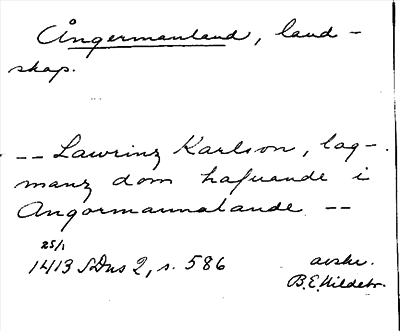 Ångermanland, land-
skap.
-- Lawrinz Karlson, lag-
manz dom hafuande i
Angormannalande --
25/1
1413 SDns 2, s. 586
avskr.
B.E. Hildebr.